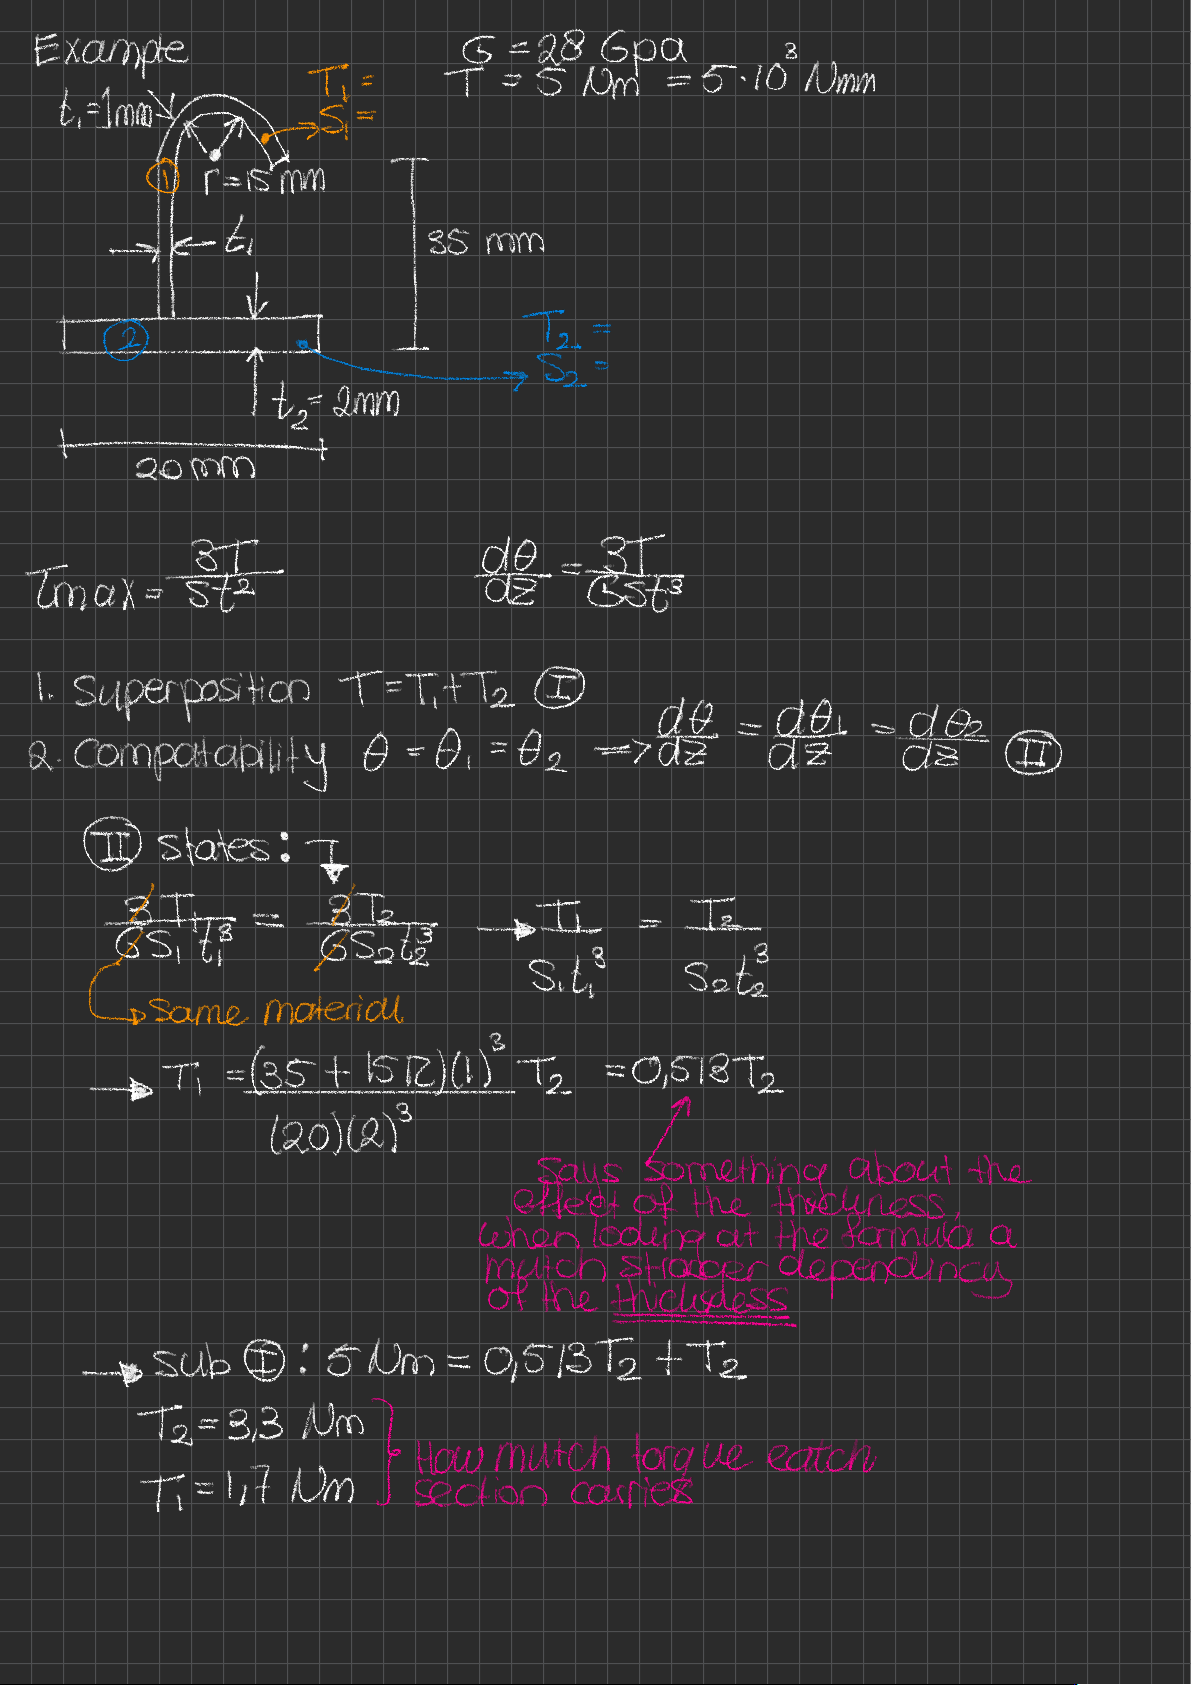 Example
G = 28 Gpa
T = 5 Nm = 5·10³ Nmm
T₁ =
S₁ =
t₁ = 1mm
①
r = 15 mm
t₁
35 mm
②
T₂ =
S₂ =
t₂ = 2mm
20 mm
τmax = 3T/St²
dθ/dz = 3T/GSt³
1. Superposition T = T₁ + T₂ Ⓘ
2. Compatability θ = θ₁ = θ₂ => dθ/dz = dθ₁/dz = dθ₂/dz Ⓘ Ⓘ
II states: T
3T₁/GS₁t₁³ = 3T₂/GS₂t₂³ → T₁/S₁t₁³ = T₂/S₂t₂³
Same material
→ T₁ = (35 + 15π)(1)³/(20)(2)³ T₂ = 0,513T₂
Says something about the
effect of the thickness,
when looking at the formula a
mutch stronger dependincy
of the thickness
→ sub Ⓘ : 5 Nm = 0,513T₂ + T₂
T₂ = 3,3 Nm
T₁ = 1,7 Nm
How mutch torque eatch
section carries